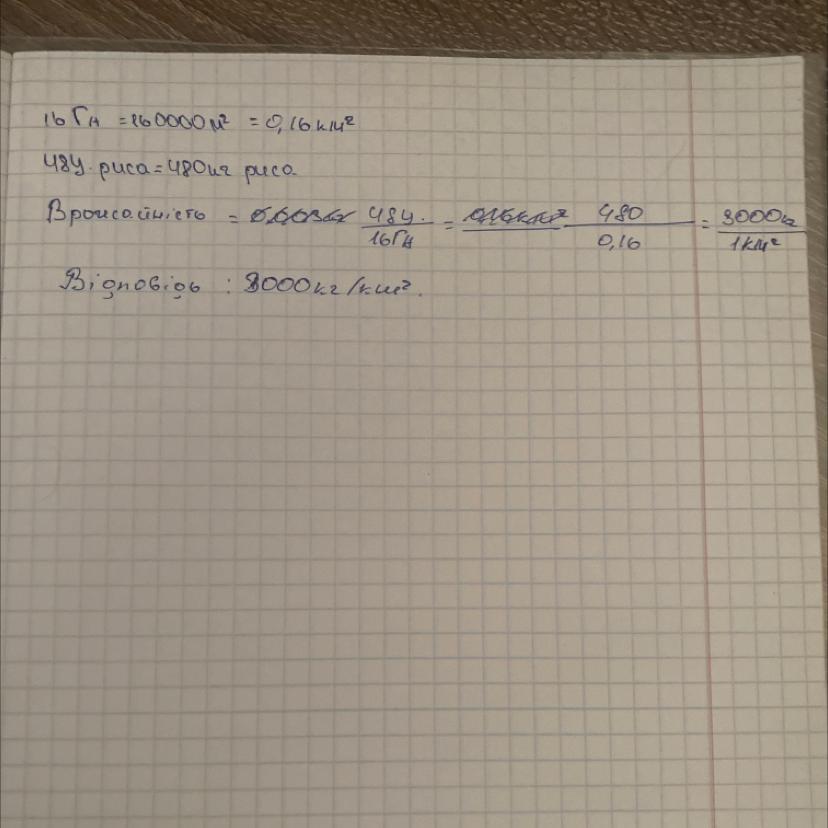 16 Га = 160000 м² = 0,16 км²
48ц. риса = 480 кг риса
Врожайність = 48ц. / 16 Га = 480 / 0,16 = 3000 кг / 1 км²
Відповідь : 3000 кг/км².